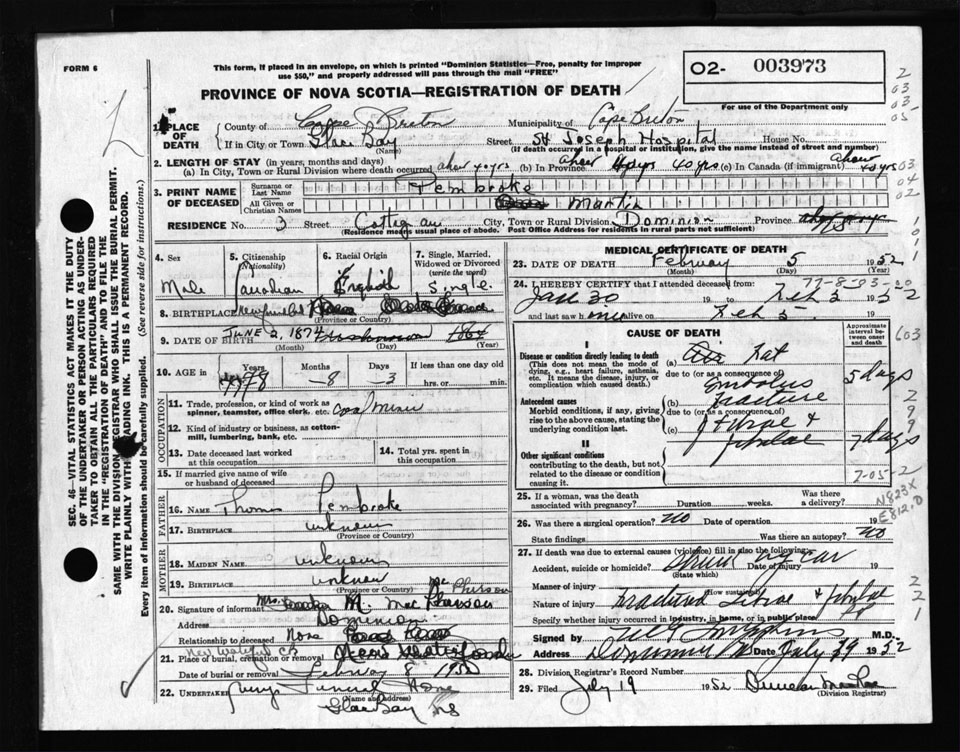 FORM 6
This form, if placed in an envelope, on which is printed "Dominion Statistics—Free, penalty for improper
use $50," and properly addressed will pass through the mail "FREE"
O2- 003973
For use of the Department only
PROVINCE OF NOVA SCOTIA—REGISTRATION OF DEATH
1. PLACE OF DEATH
County of Cape Breton Municipality of Cape Breton
If in City or Town Glace Bay (Name) Street St Joseph Hospital House No.
(If death occurred in a hospital or institution, give the name instead of street and number)
2. LENGTH OF STAY (in years, months and days)
(a) In City, Town or Rural Division where death occurred 40 yrs (b) In Province 40 yrs (c) In Canada (if immigrant) 40 yrs
3. PRINT NAME OF DECEASED
Surname or Last Name Pembroke
All Given or Christian Names Martin
RESIDENCE No. 3 Street City, Town or Rural Division Dominion Province NS
(Residence means usual place of abode. Post Office Address for residents in rural parts not sufficient)
4. Sex Male
5. Citizenship (Nationality) Canadian
6. Racial Origin English
7. Single, Married, Widowed or Divorced (write the word) Single
8. BIRTHPLACE (Province or Country)
9. DATE OF BIRTH JUNE 2, 1874 (Month) (Day) (Year)
10. AGE in Years 78 Months 8 Days 3 If less than one day hrs. or min.
OCCUPATION
11. Trade, profession, or kind of work as spinner, teamster, office clerk, etc. coal miner
12. Kind of industry or business, as cotton-mill, lumbering, bank, etc.
13. Date deceased last worked at this occupation
14. Total yrs. spent in this occupation
15. If married give name of wife or husband of deceased
FATHER
16. NAME Thomas Pembroke
17. BIRTHPLACE unknown
(Province or Country)
MOTHER
18. MAIDEN NAME unknown
19. BIRTHPLACE unknown
(Province or Country)
McPherson
20. Signature of informant Mrs. M. MacPherson
Address Dominion
Relationship to deceased None
21. Place of burial, cremation or removal New Waterford
Date of burial or removal February 8 1952
22. UNDERTAKER Funeral Home
(Name and Address)
Glace Bay NS
MEDICAL CERTIFICATE OF DEATH
23. DATE OF DEATH February 5 1952
(Month) (Day) (Year)
24. I HEREBY CERTIFY that I attended deceased from:
Jan 30 19 to Feb 5 1952
and last saw him alive on Feb 5 19
CAUSE OF DEATH
Approximate interval between onset and death
I
Disease or condition directly leading to death
(This does not mean the mode of dying, e.g., heart failure, asthenia, etc. It means the disease, injury, or complication which caused death.)
(a) Fat Embolus 5 days
due to (or as a consequence of)
Antecedent causes
Morbid conditions, if any, giving rise to the above cause, stating the underlying condition last.
(b) Fracture
due to (or as a consequence of)
(c) & fibulae 7 days
II
Other significant conditions
contributing to the death, but not related to the disease or condition causing it.
7-05-2
25. If a woman, was the death associated with pregnancy? Duration weeks. Was there a delivery?
N823X
E812.0
26. Was there a surgical operation? NO Date of operation 19
State findings Was there an autopsy? NO
27. If death was due to external causes (violence) fill in also the following:
Accident, suicide or homicide? Struck by car Date of injury 19
(State which)
Manner of injury
(How sustained)
Nature of injury Fractured & fibulae
Specify whether injury occurred in industry, in home, or in public place
Signed by M.D.
Address Dominion NS Date July 29 1952
28. Division Registrar's Record Number
29. Filed July 19 1952 Duncan
(Division Registrar)
SEC. 46—VITAL STATISTICS ACT MAKES IT THE DUTY
OF THE UNDERTAKER OR PERSON ACTING AS UNDERTAKER TO OBTAIN ALL THE PARTICULARS REQUIRED
IN THE "REGISTRATION OF DEATH" AND TO FILE THE
SAME WITH THE DIVISION REGISTRAR WHO SHALL ISSUE THE BURIAL PERMIT.
WRITE PLAINLY WITH UNFADING INK. THIS IS A PERMANENT RECORD.
Every item of information should be carefully supplied. (See reverse side for instructions.)